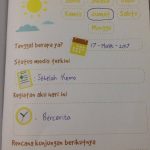 Senin Selasa Rabu
Kamis Jumat Sabtu
Minggu
Tanggal berapa ya?
17 - Maret - 2017
Status medis terkini
Setelah Kemo
Kegiatan aku hari ini
- Bercerita
Rencana kunjungan berikutnya